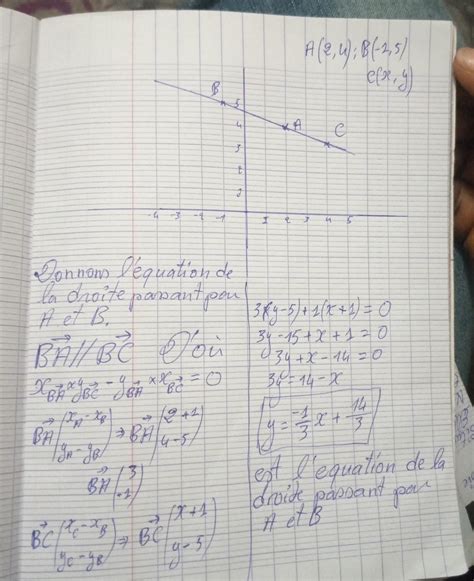 A(2,4); B(-1,5)
C(x,y)
B
5
4
A
C
3
2
-4 -3 -2 -1 1 2 3 4 5
Donnons l'équation de
la droite passant par
A et B.
BA // BC D'où
x BA × y BC - y BA × x BC = 0
BA (x_A - x_B
y_A - y_B) ⇒ BA (2+1
4-5)
BA (3
-1)
BC (x_C - x_B
y_C - y_B) ⇒ BC (x+1
y-5)
3(y-5)+1(x+1)=0
3y-15+x+1=0
3y+x-14=0
3y=14-x
y = -1/3 x + 14/3
est l'équation de la
droite passant par
A et B